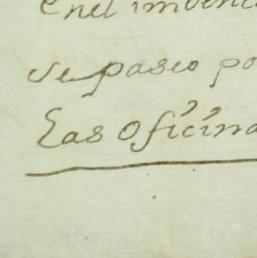 enel imbent
se paseo po
Las oficina